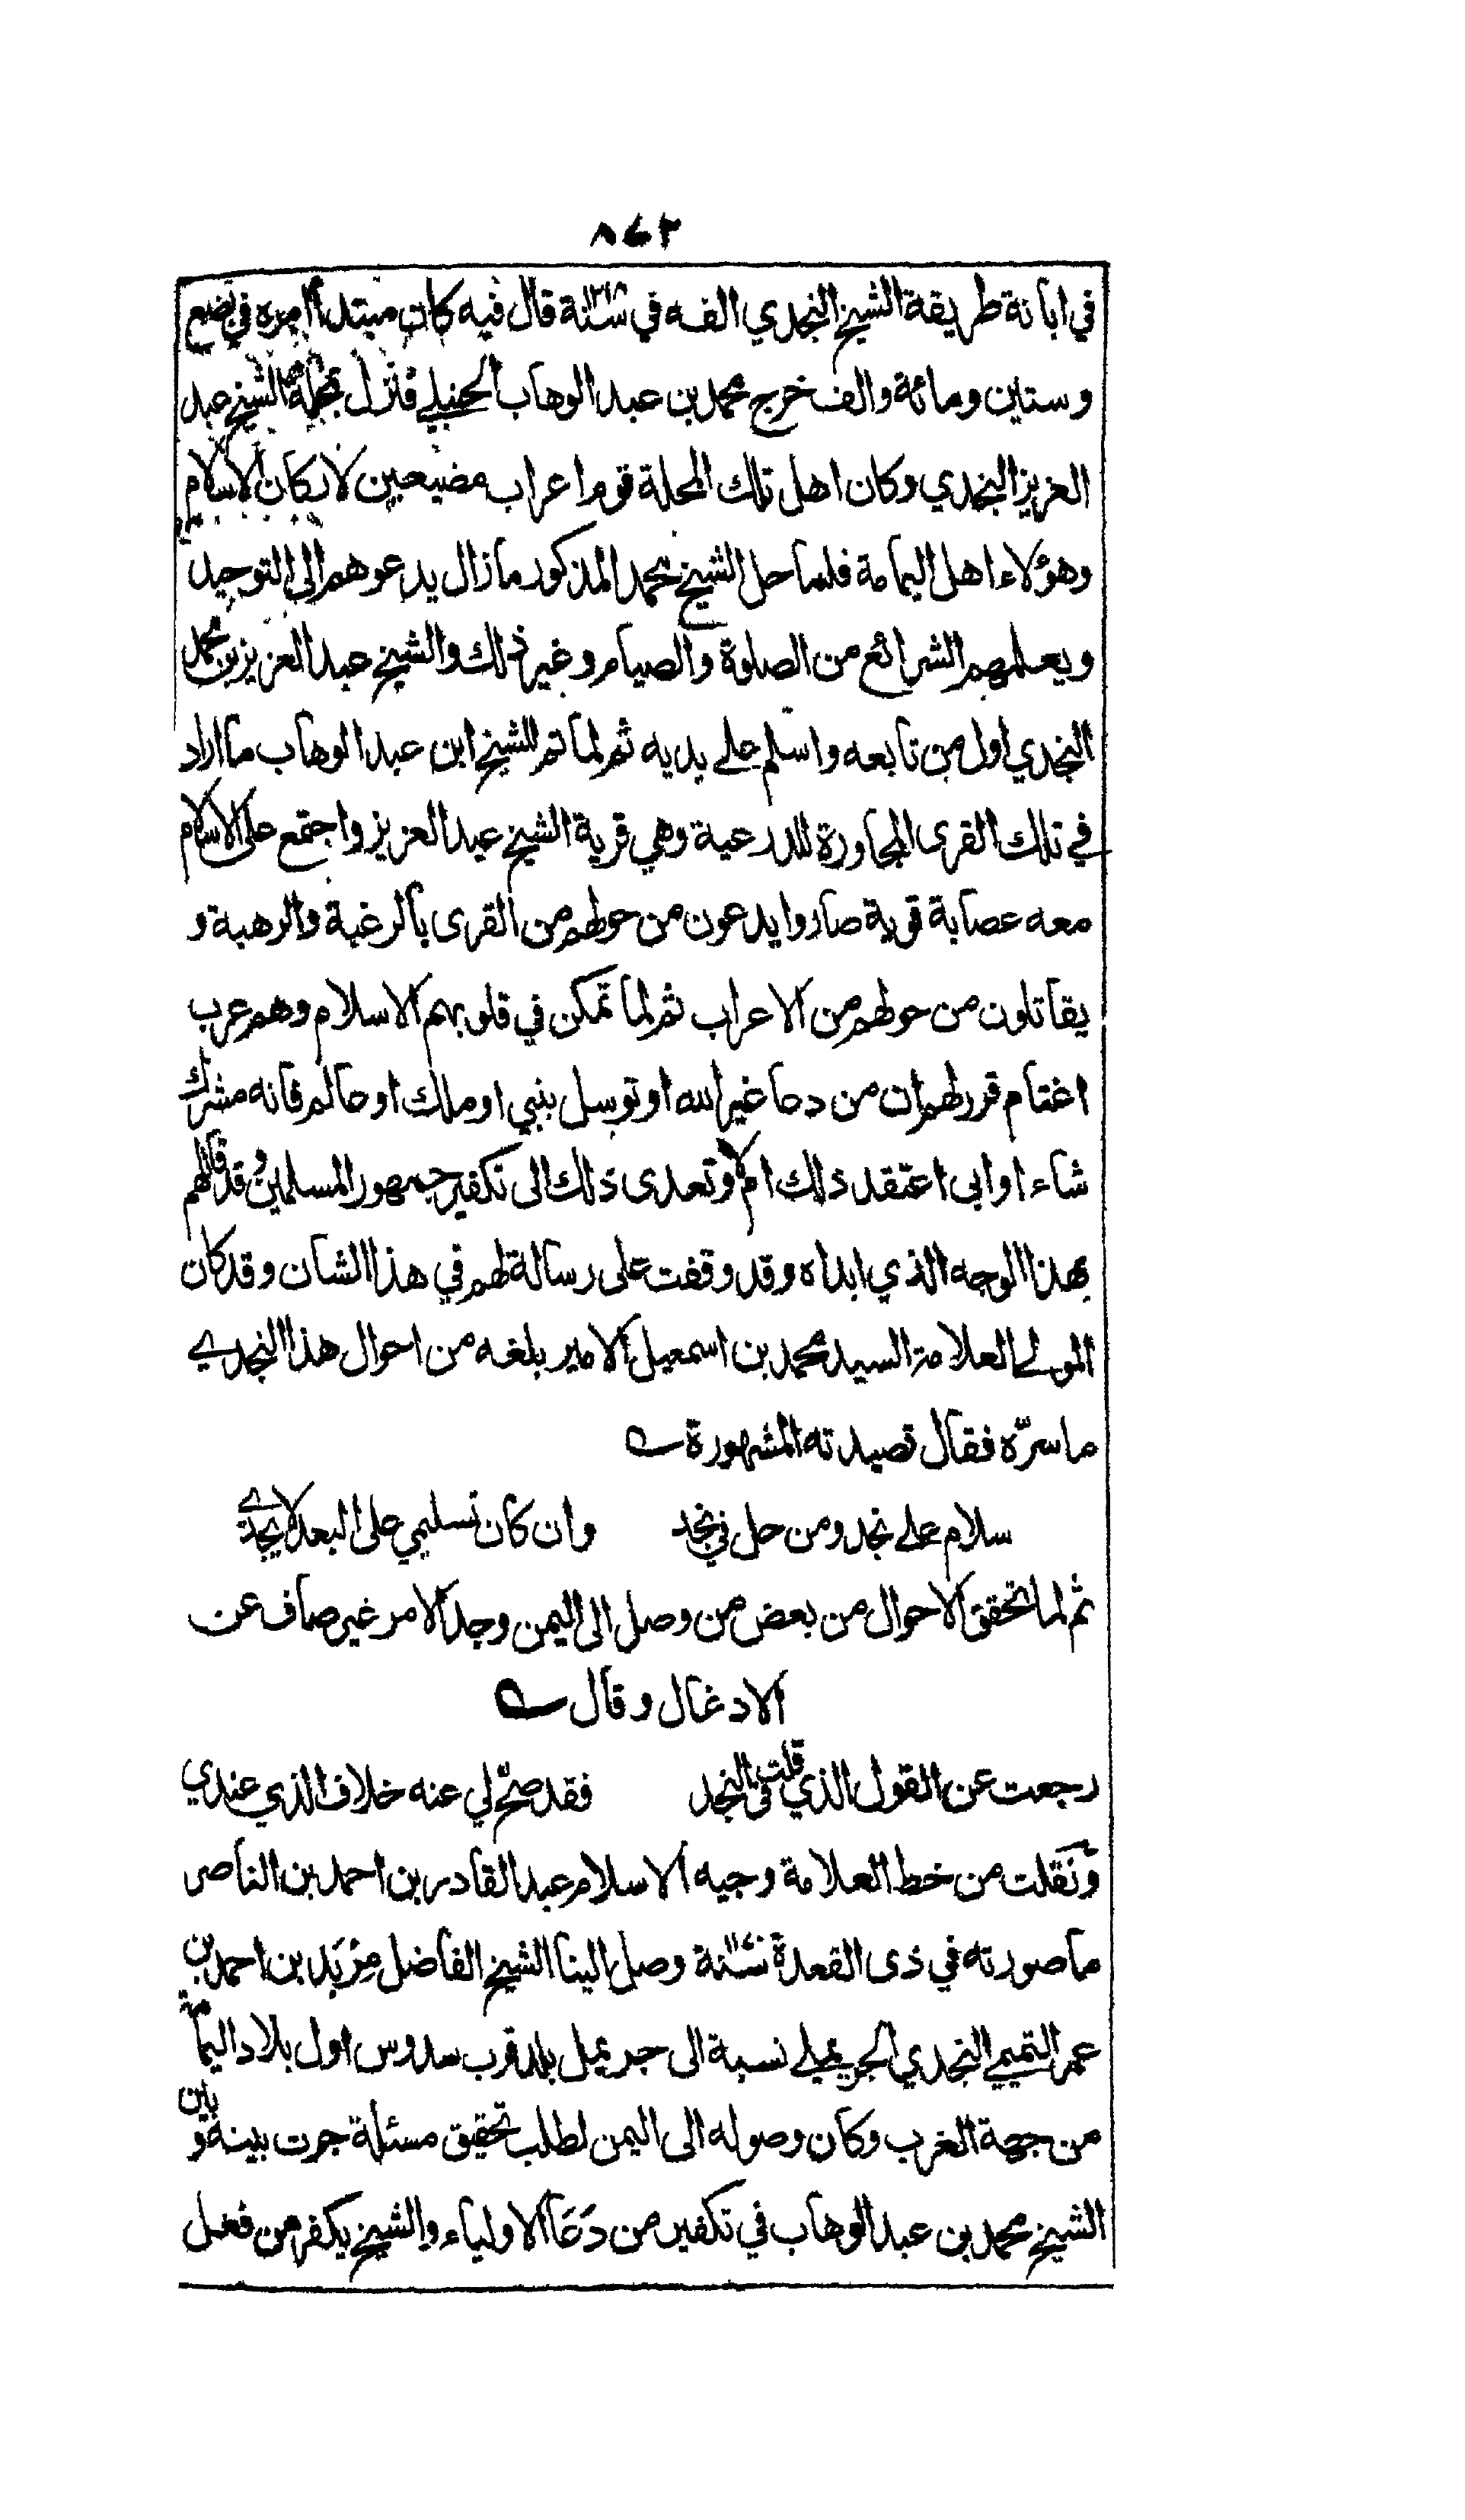 ٨٧٢
في ابانة طريقة الشيخ النجدي الفه في سنة ١٢١٨ قال فيه كان مبتدأ امره في بضع
وستين ومائة والف خرج محمد بن عبد الوهاب الحنبلي فنزل بمحلة الشيخ عبد
العزيز النجدي وكان اهل تلك المحلة قوم اعراب مضيعين لاركان الاسلام
وهؤلاء اهل اليمامة فلما حل الشيخ محمد المذكور مازال يدعوهم الى التوحيد
ويعلمهم الشرائع من الصلوة والصيام وغير ذلك والشيخ عبد العزيز بن محمد
النجدي اول من تابعه واسلم على يديه ثم لما تم للشيخ ابن عبد الوهاب ما اراد
في تلك القرى المجاورة للدرعية وهي قرية الشيخ عبد العزيز واجتمع على الاسلام
معه عصابة قوية صاروا يدعون من حولهم من القرى بالرغبة والرهبة و
يقاتلون من حولهم من الاعراب ثم لما تمكن في قلوبهم الاسلام وهم عرب
اغتام قرر لهم ان من دعا غير الله او توسل بنبي او ملك او عالم فانه مشرك
شاء او ابى اعتقد ذلك ام لا وتعدى ذلك الى تكفير جمهور المسلمين وقد قاتلهم
بهذا الوجه الذي ابداه وقد وقفت على رسالة لهم في هذا الشان وقد كان
المولى العلامة السيد محمد بن اسمعيل الامير بلغه من احوال هذا النجدي
ما سرّه فقال قصيدته المشهورة
سلام على نجد ومن حل في نجد وان كان تسليمي على البعد لا يجدي
ثم لما تحقق الاحوال من بعض من وصل الى اليمن وجد الامر غير صاف عن
الادغال وقال
رجعت عن القول الذي قلت في النجد فقد صحّ لي عنه خلاف الذي عندي
ونقلت من خط العلامة وجيه الاسلام عبد القادر بن احمد بن الناصر
ما صورته في ذى القعدة سنة ١١٧٠ وصل الينا الشيخ الفاضل مِرْبَد بن احمد بن
عمر التميمي النجدي الحريملي نسبة الى حريمل بلد قرب سدوس اول بلاد اليمامة
من جهة الغرب وكان وصوله الى اليمن لطلب تحقيق مسئلة جرت بينه وبين
الشيخ محمد بن عبد الوهاب في تكفير من دَعَا الاولياء والشيخ يكفر من فعل